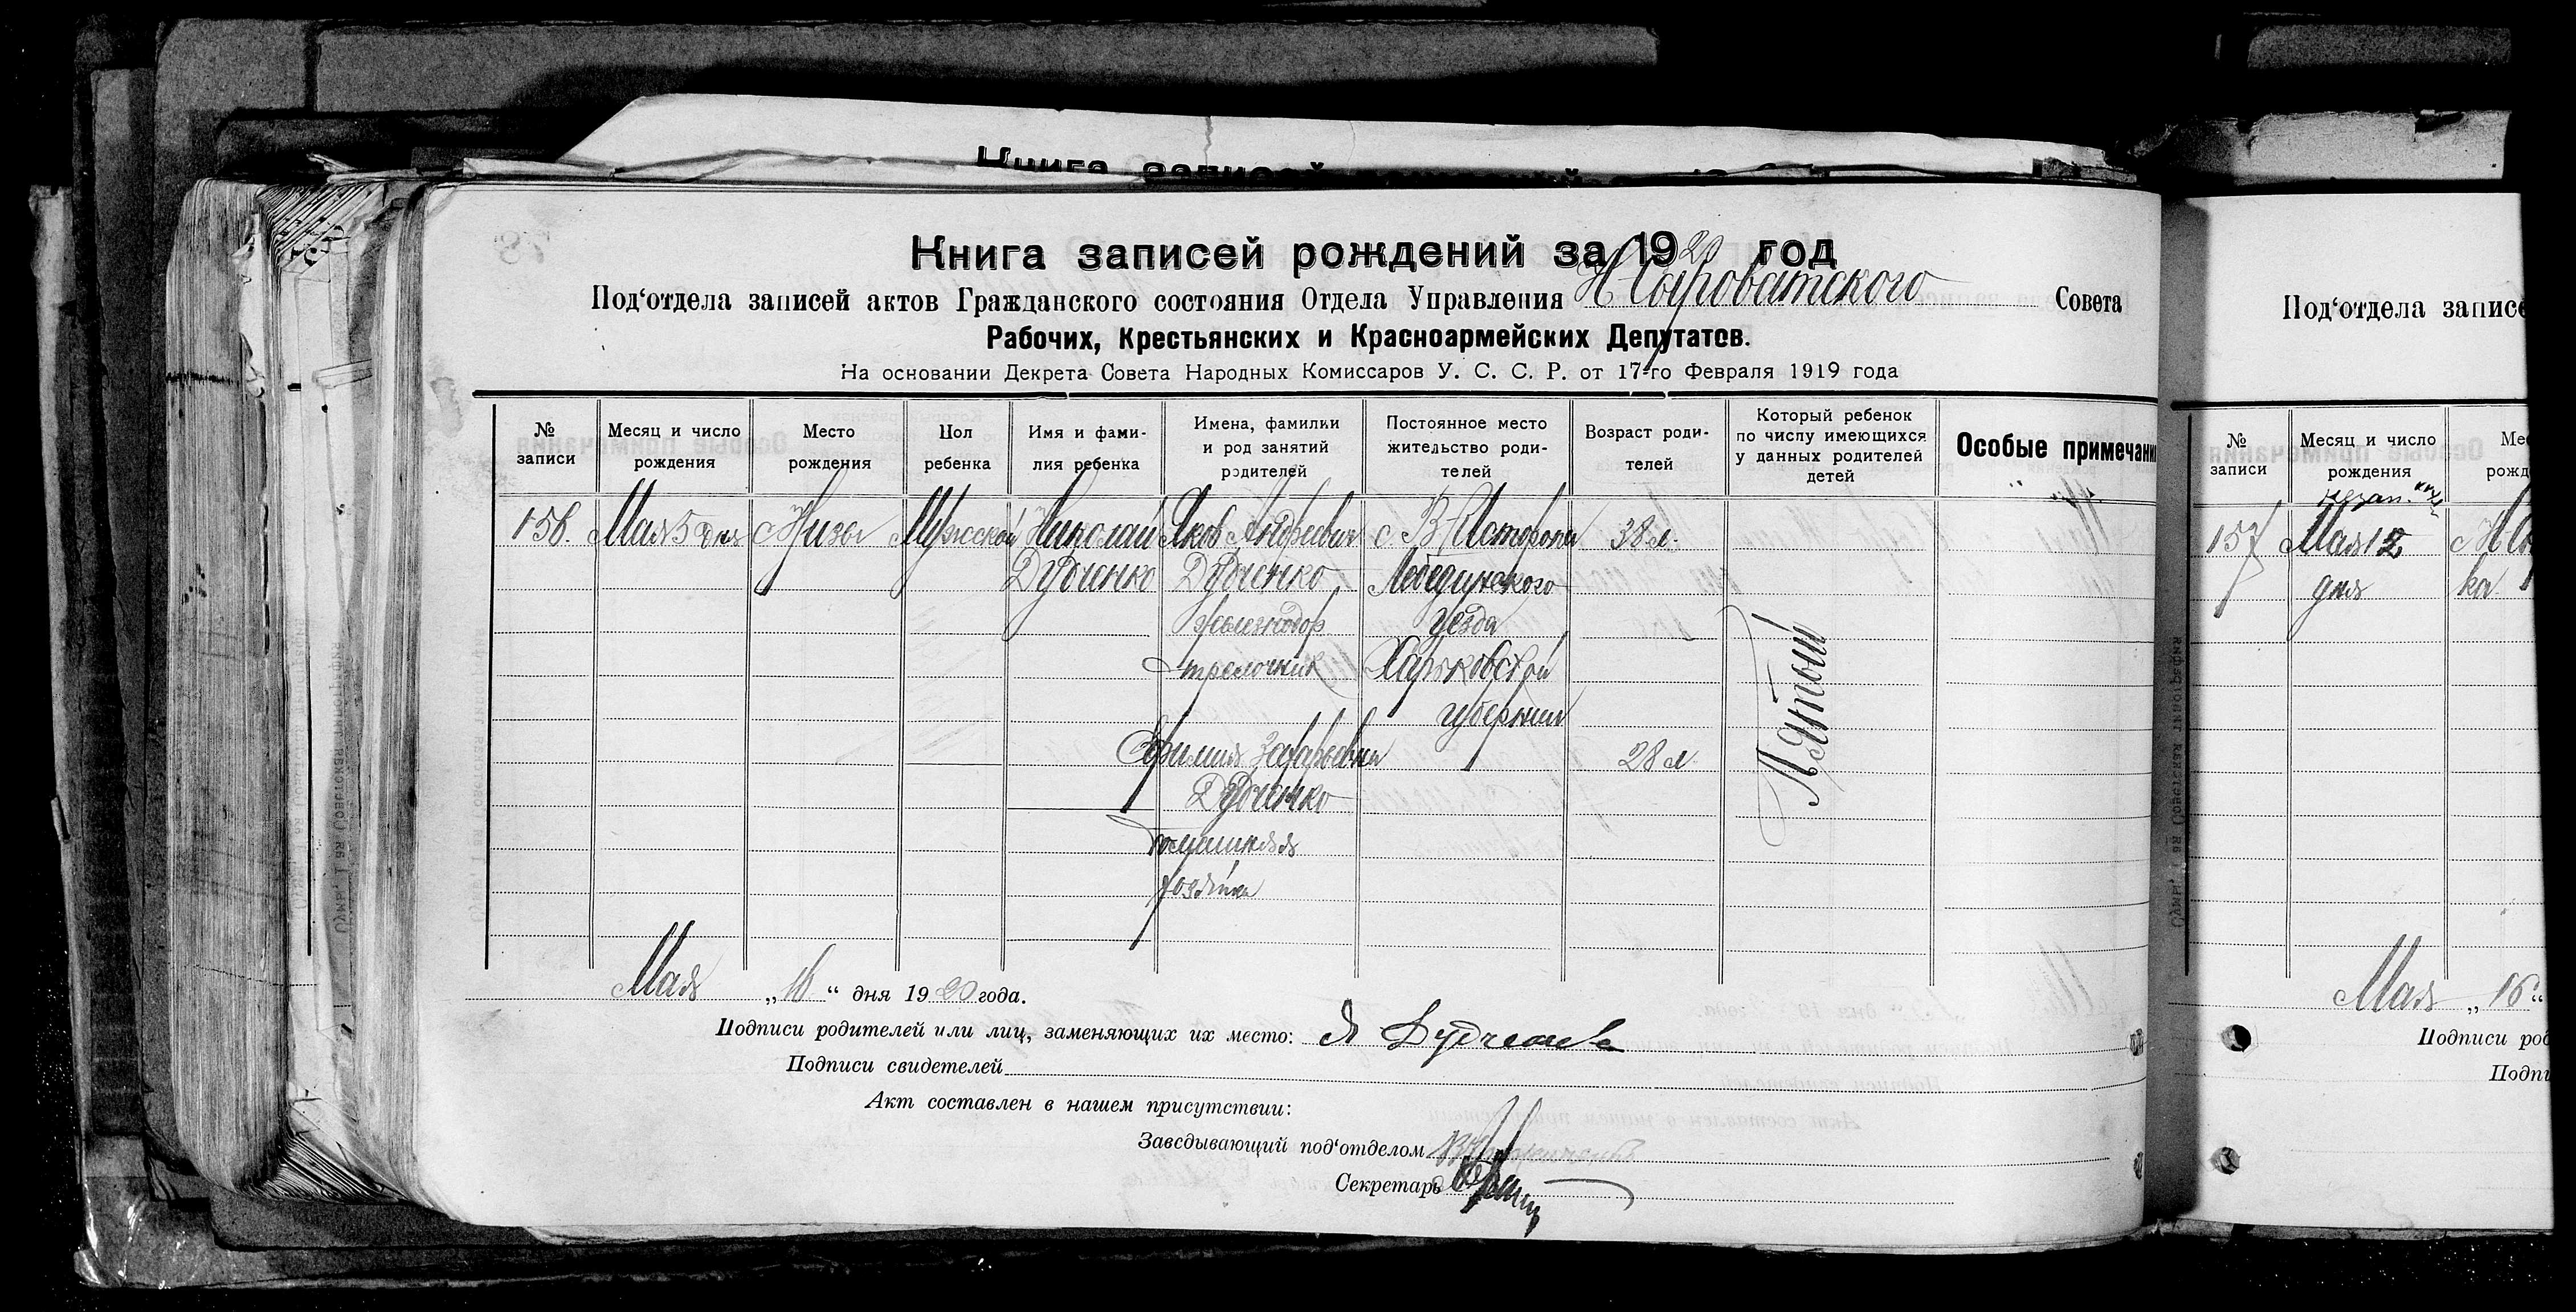 Книга записей
Книга записей рождений за 1920 год
Под‘отдела записей актов Гражданского состояния Отдела Управления Н Сыроватского Совета
Рабочих, Крестьянских и Красноармейских Депутатов.
На основании Декрета Совета Народных Комиссаров У. С. С. Р. от 17-го Февраля 1919 года
№ записи
Месяц и число рождения
Место рождения
Пол ребенка
Имя и фамилия ребенка
Имена, фамилии и род занятий родителей
Постоянное место жительство родителей
Возраст родителей
Который ребенок по числу имеющихся у данных родителей детей
Особые примечани
156. Мая 5 дня с Низы Мужской Николай Яков Андреевич с В-Истороп 38 л.
Дудченко Дудченко Лебединского
Железнодор Уезда
Стрелочник Харьковской
губернии
Ефимия Захарьевна 28 л.
Дудченко
домашняя
хозяйка
Пятый
Мая „16“ дня 1920 года.
Подписи родителей или лиц, заменяющих их место: Я Дудченко
Подписи свидетелей
Акт составлен в нашем присутствии:
Заведывающий под‘отделом
Секретарь
Под‘отдела записе
№ записи
Месяц и число рождения
Мес рожд
157 Мая 12 с Н Сы
дня ка
Мая „16“
Подписи род
Подпи